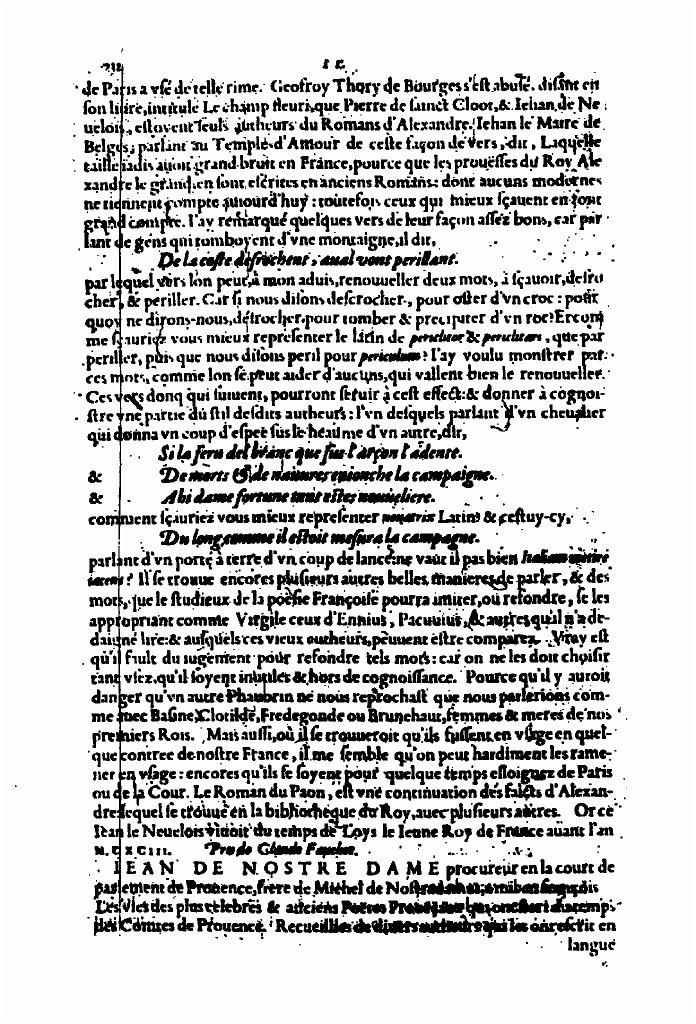 I E.
de Paris a vsé de telle rime. Geofroy Thory de Bourges s'est abusé, disant en
son liure, intitulé Le champ fleuri, que Pierre de sainct Cloot, & Iehan de Ne
uelois, estoyent seuls autheurs du Romans d'Alexandre. Iehan le Maire de
Belges, parlant au Temple d'Amour de ceste façon de vers, dit, Laquelle
taille iadis auoit grand bruit en France, pource que les prouësses du Roy Ale
xandre le grand, en sont escrites en anciens Romans: dont aucuns modernes
ne tiennent compte auiourd'huy: toutefois ceux qui mieux sçauent en font
grand compte. I'ay remarqué quelques vers de leur façon assez bons, car par
lant de gens qui tomboyent d'vne montaigne, il dit,
De la coste desrochent, aual vont perillant.
par lequel vers lon peut, à mon aduis, renouueller deux mots, à sçauoir, desro
cher, & periller. Car si nous disons descrocher, pour oster d'vn croc: pour
quoy ne dirons-nous, desrocher, pour tomber & precipiter d'vn roc? Et com
me sçauriez vous mieux representer le latin de & , que par
periller, puis que nous disons peril pour periculum? I'ay voulu monstrer par
ces mots, comme lon se peut aider d'aucuns, qui vallent bien le renouueller.
Ces vers donq qui suiuent, pourront seruir à cest effect: & donner à cognoi-
stre vne partie du stil desdits autheurs: l'vn desquels parlant d'vn cheualier
qui donna vn coup d'espee sus le heaulme d'vn autre, dit,
Si la feru del branc que sus l'arçon l'adente.
& De morts & de naurez enionche la campaigne.
& Ahi dame fortune tant estes nouueliere.
comment sçauriez vous mieux representer nouatrix Latin? & cestuy-cy,
Du long comme il estoit mesura la campagne.
parlant d'vn porté à terre d'vn coup de lance: ne vaut il pas bien Italiam metire
iacens? Il se trouue encores plusieurs autres belles manieres de parler, & des
mots, que le studieux de la poësie Françoise pourra imiter, ou refondre, se les
appropriant comme Virgile ceux d'Ennius, Pacuuius, & autres qu'il n'a de-
daigné lire: & ausquels ces vieux autheurs, peuuent estre comparez. Vray est
qu'il fault du iugement pour refondre tels mots: car on ne les doit choisir
tant viez, qu'il soyent inutiles & hors de cognoissance. Pource qu'il y auroit
danger qu'vn autre Phauorin ne nous reprochast que nous parlerions com-
me auec Basine, Clotilde, Fredegonde ou Brunehaut, femmes & meres de nos
premiers Rois. Mais aussi, où il se trouueroit qu'ils fussent en vsage en quel-
que contree de nostre France, il me semble qu'on peut hardiment les rame-
ner en vsage: encores qu'ils se soyent pour quelque temps esloignez de Paris
ou de la Cour. Le Roman du Paon, est vne continuation des faicts d'Alexan-
dre lequel se trouue en la bibliothèque du Roy, auec plusieurs autres. Or ce
Iean le Neuelois viuoit du temps de Loys le Ieune Roy de France auant l'an
M. C X C I I I. Pris de Claude Fauchet.
IEAN DE NOSTRE DAME procureur en la court de
parlement de Prouence, frere de Michel de Nostradamus,
Les Vies des plus celebres & anciens Poetes Prouençaux qui ont flori du temps
des Comtes de Prouence. Recueillies de diuers autheurs qui les ont escrit en
langue